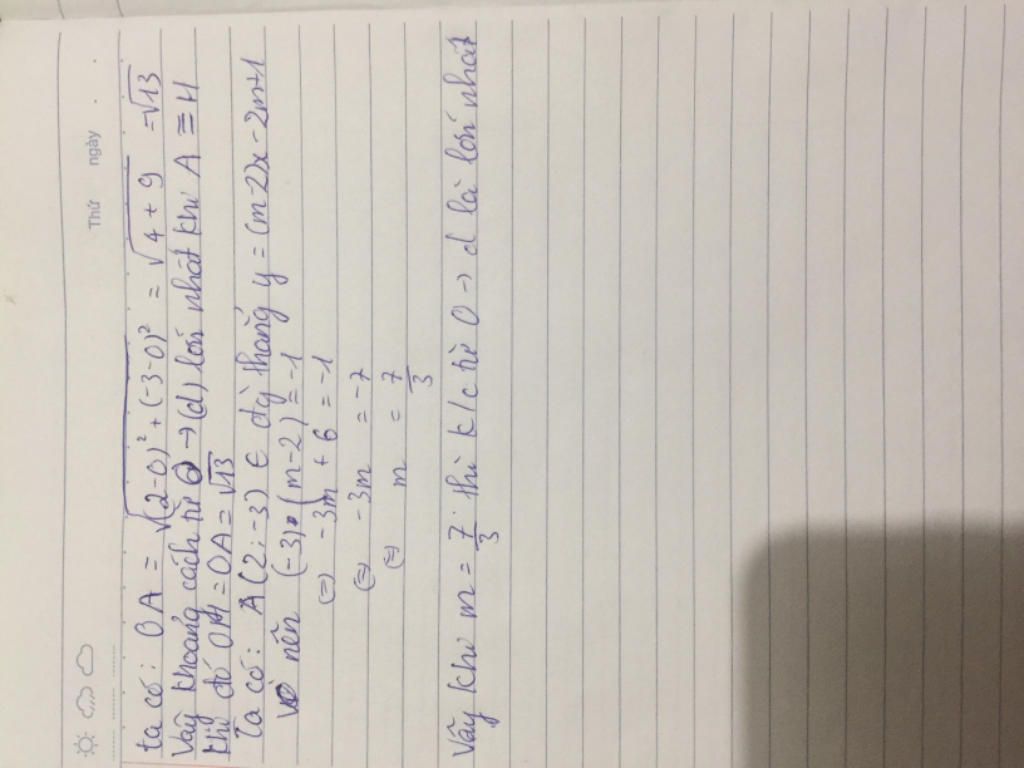 Thứ ngày
ta có: OA = √(2-0)² + (-3-0)² = √4+9 = √13
Vậy khoảng cách từ O → (d) lớn nhất khi A ≡ H
khi đó OH = OA = √13
Ta có: A(2;-3) ∈ đg thẳng y = (m-2)x - 2m+1
nên (-3). (m-2) = -1
(=) -3m + 6 = -1
(=) -3m = -7
(=) m = 7/3
Vậy khi m = 7/3 thì k/c từ O → d là lớn nhất